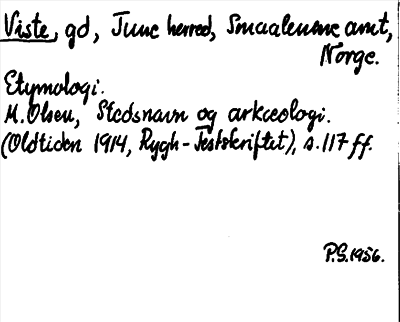 Viste, gd, Tune herred, Smaalenene amt,
Norge.
Etymologi.
M. Olsen, Stedsnavn og arkæologi.
(Oldtiden 1914, Rygh-Festskriftet), s. 117 ff.
P.G. 1956.